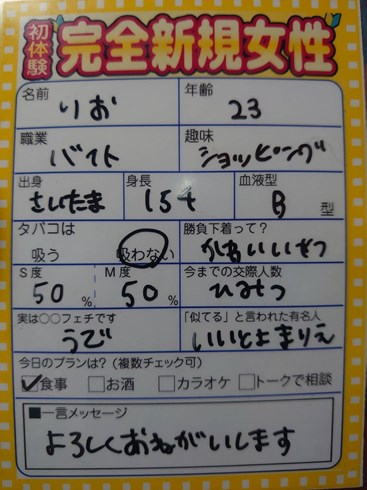 初体験 完全新規女性
名前 年齢
りお 23
職業 趣味
バイト ショッピング
出身 身長 血液型
さいたま 154 B 型
タバコは 勝負下着って?
吸う 吸わない かわいいやつ
S度 M度 今までの交際人数
50% 50% ひみつ
実は○○フェチです 「似てる」と言われた有名人
うで いいとよまりえ
今日のプランは?(複数チェック可)
☑食事 □お酒 □カラオケ □トークで相談
■一言メッセージ
よろしくおねがいします